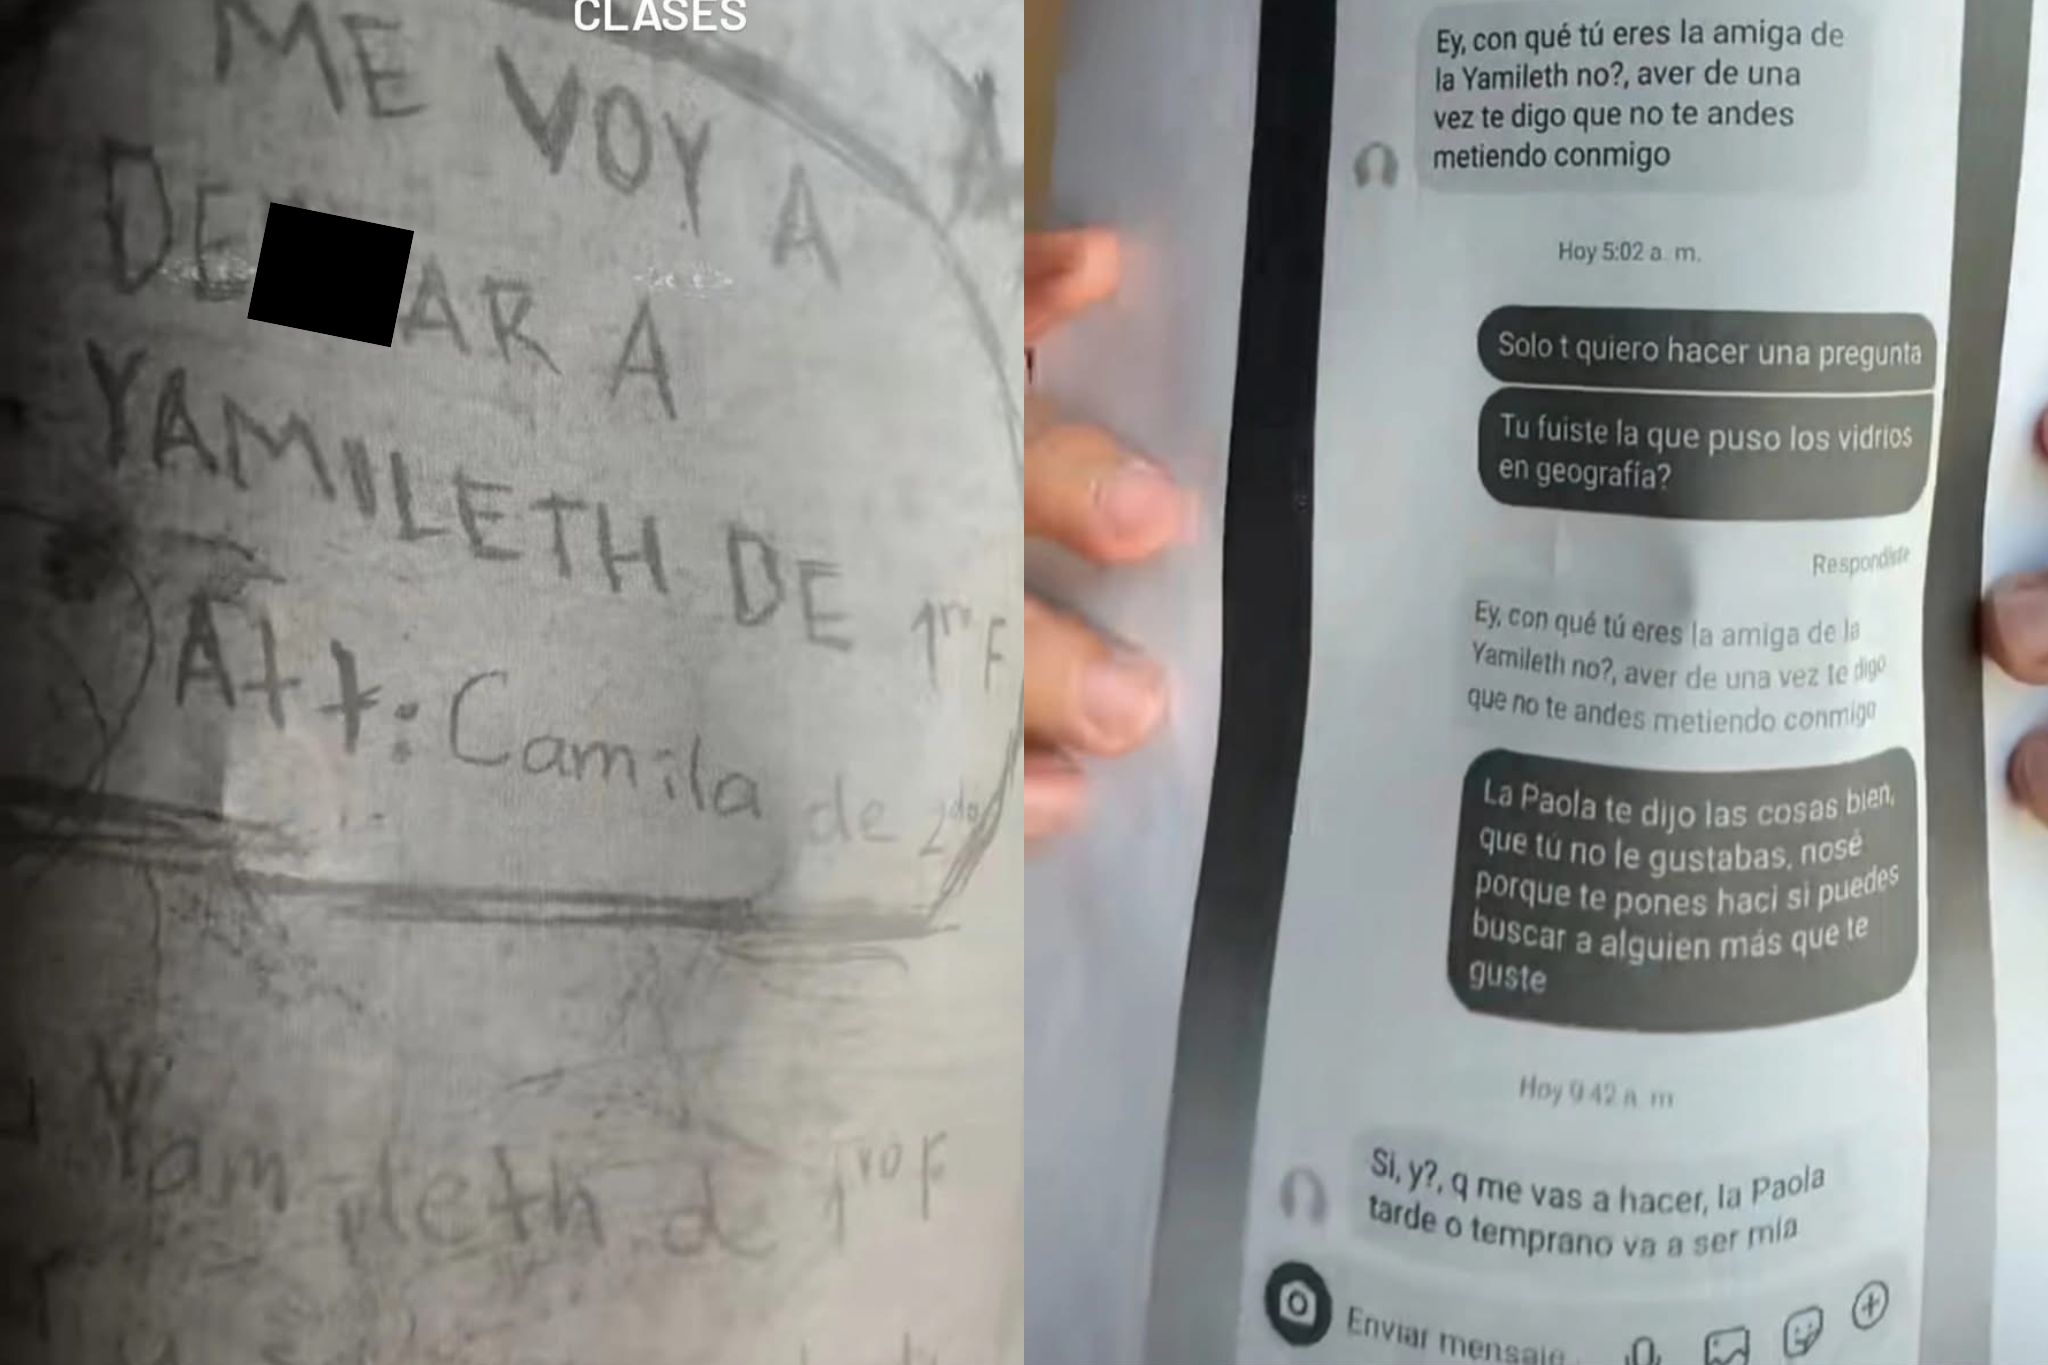 CLASES
ME VOY A
DE AR A
YAMILETH DE 1ro F
Att: Camila de 2do
Yamileth de 1ro F
Ey, con qué tú eres la amiga de
la Yamileth no?, aver de una
vez te digo que no te andes
metiendo conmigo
Hoy 5:02 a. m.
Solo t quiero hacer una pregunta
Tu fuiste la que puso los vidrios
en geografía?
Respondiste
Ey, con qué tú eres la amiga de la
Yamileth no?, aver de una vez te digo
que no te andes metiendo conmigo
La Paola te dijo las cosas bien,
que tú no le gustabas, nosé
porque te pones haci si puedes
buscar a alguien más que te
guste
Hoy 9:42 a. m
Si, y?, q me vas a hacer, la Paola
tarde o temprano va a ser mía
Enviar mensaje